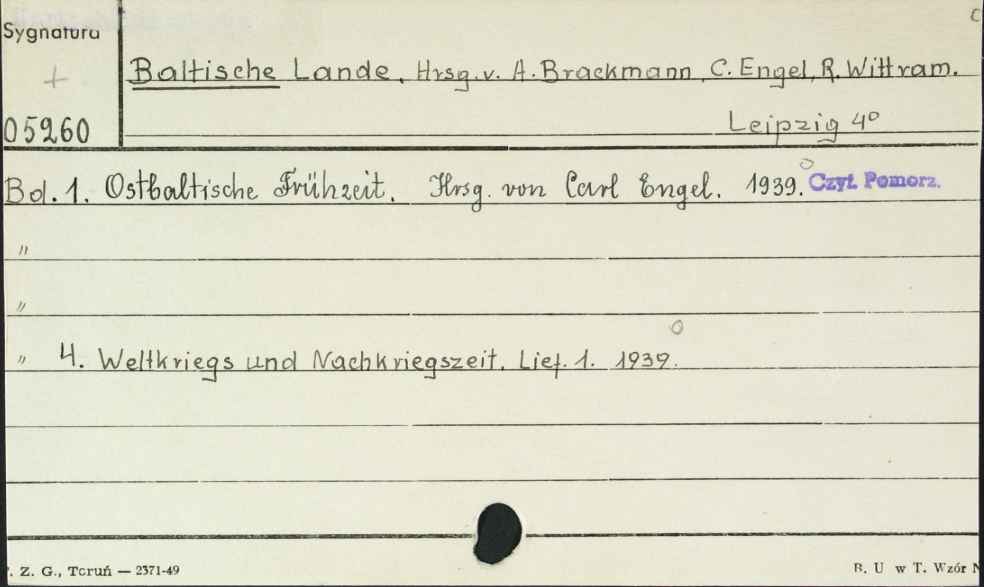 Sygnatura
+
05260
Baltische Lande. Hrsg. v. A. Brackmann, C. Engel, R. Wittram.
Leipzig 4°
Bd. 1. Ostbaltische Frühzeit. Hrsg. von Carl Engel. 1939. Czyt. Pomorz.
"
"
" 4. Weltkriegs und Nachkriegszeit. Lief. 1. 1939.
. Z. G., Toruń — 2371-49
B. U w T. Wzór